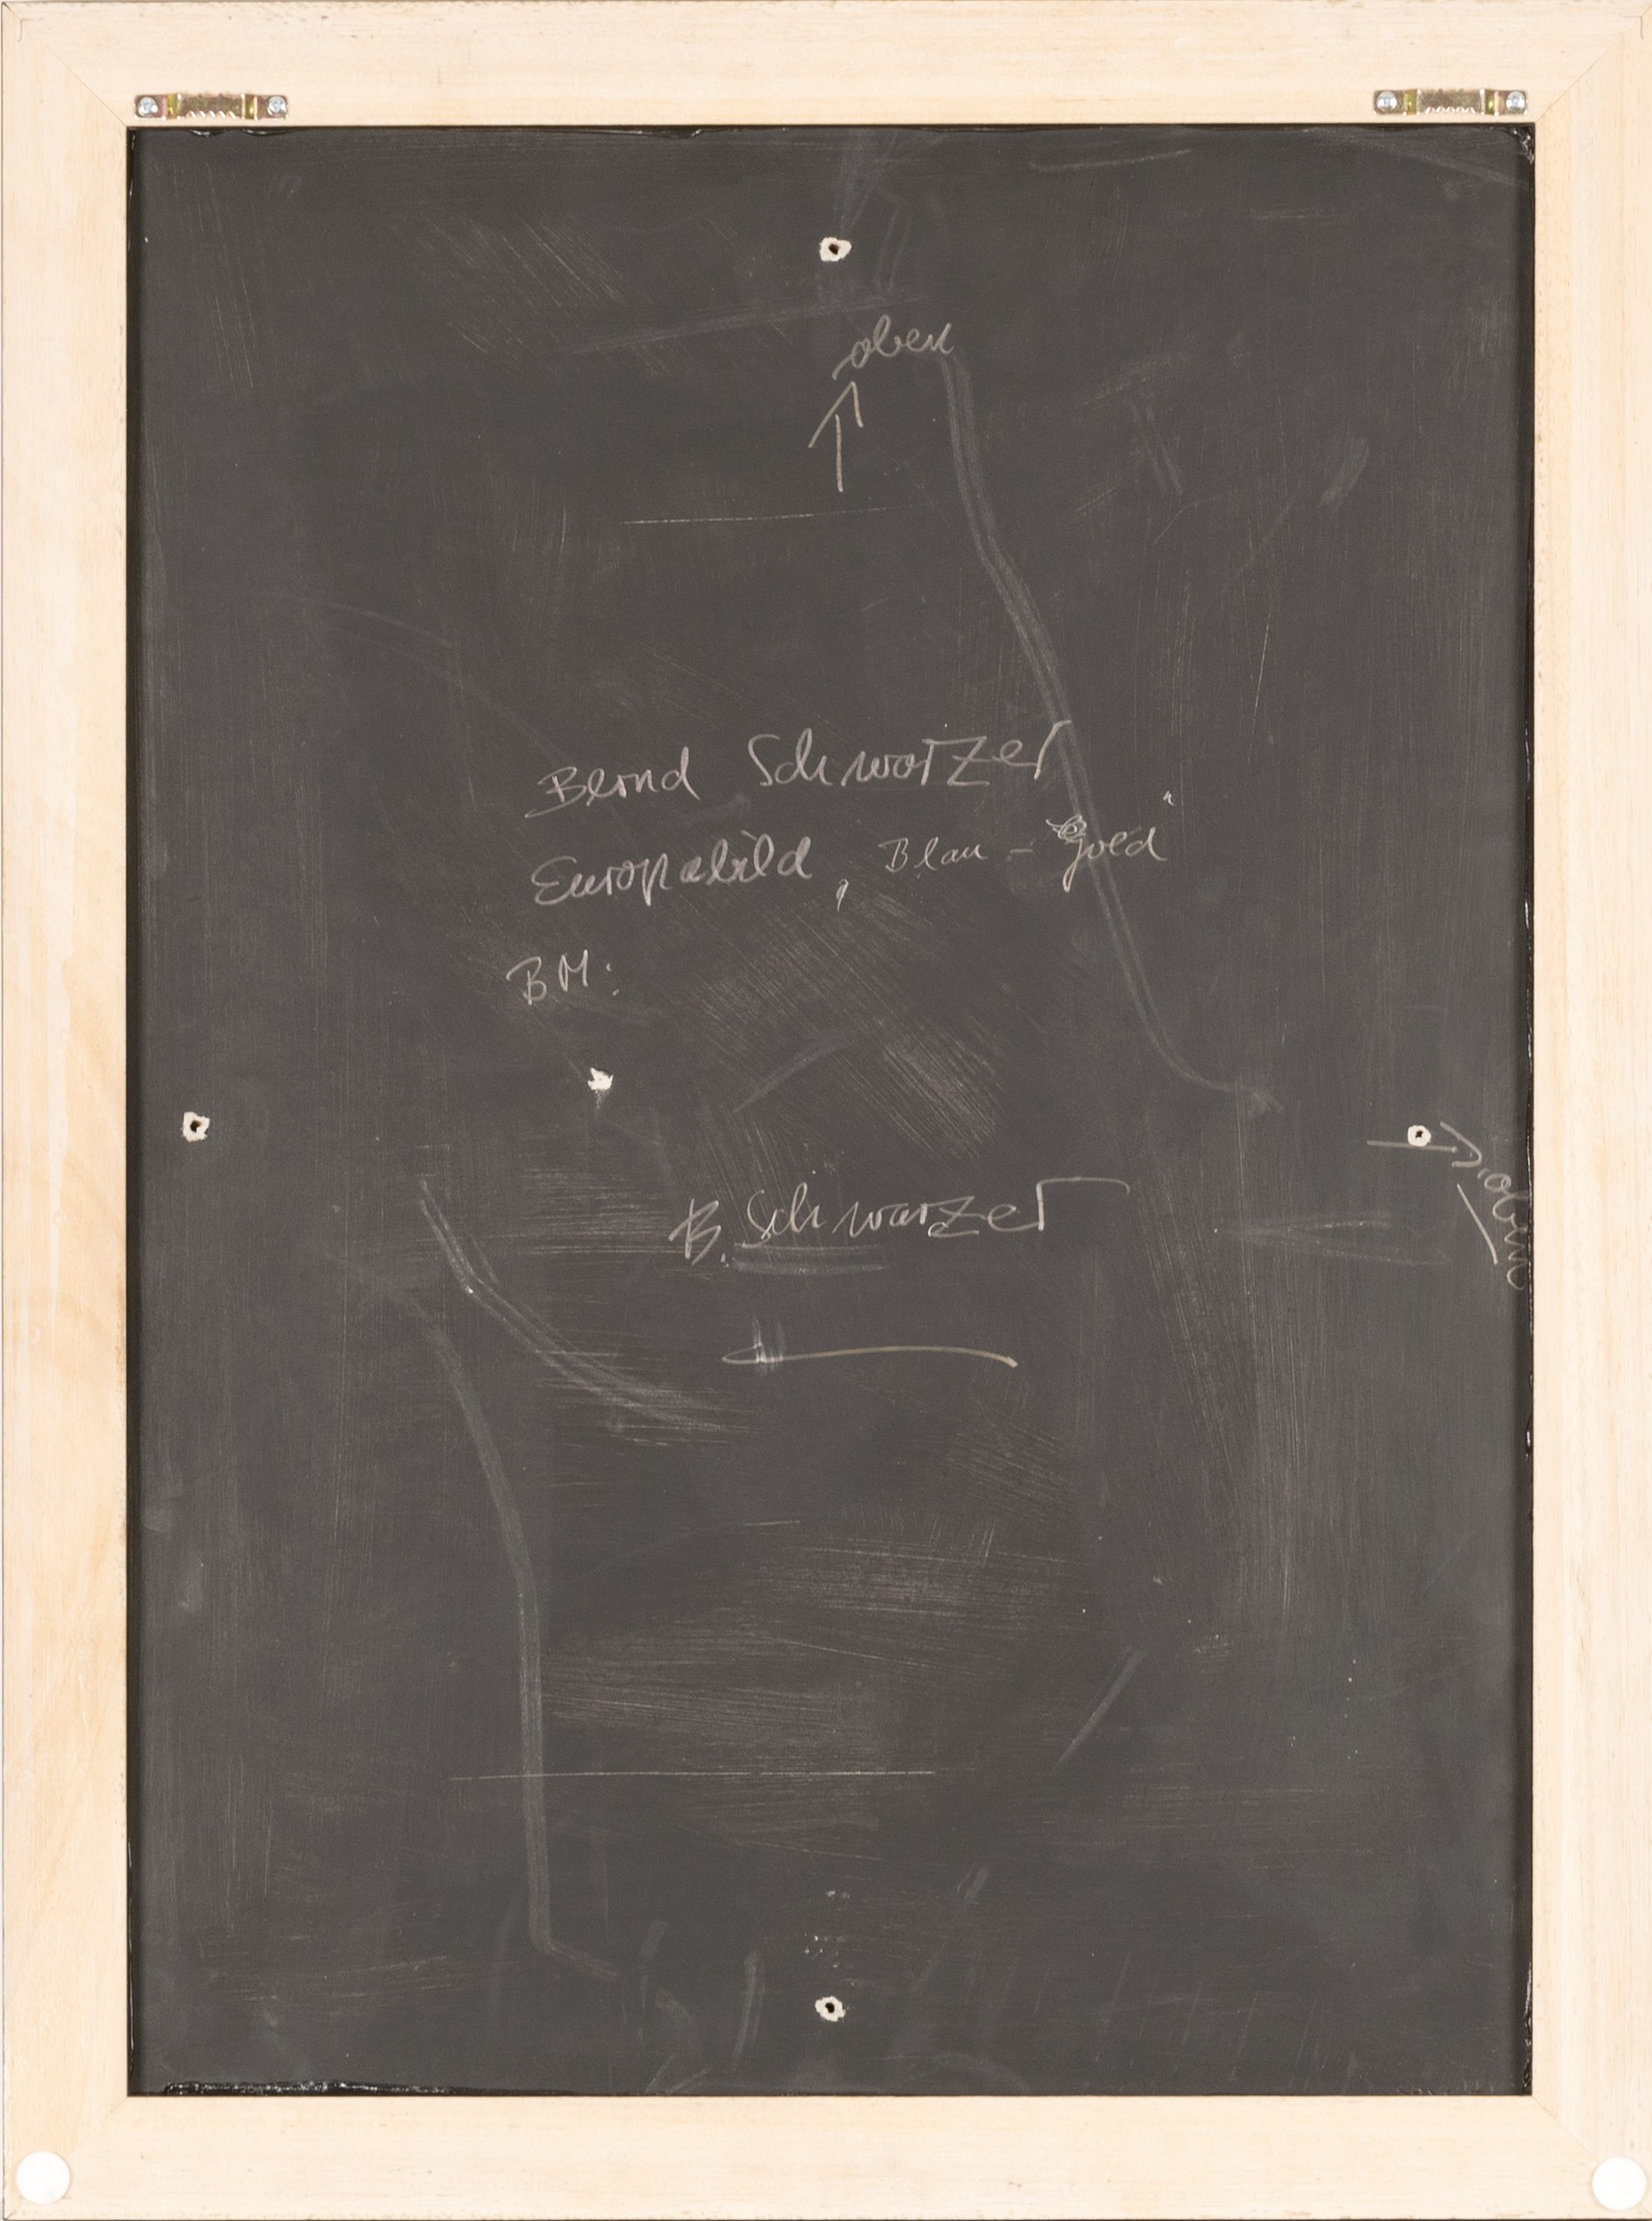 oben
Bernd Schwarzer
Europabild, Blau - Gold"
BM:
oben
B. Schwarzer